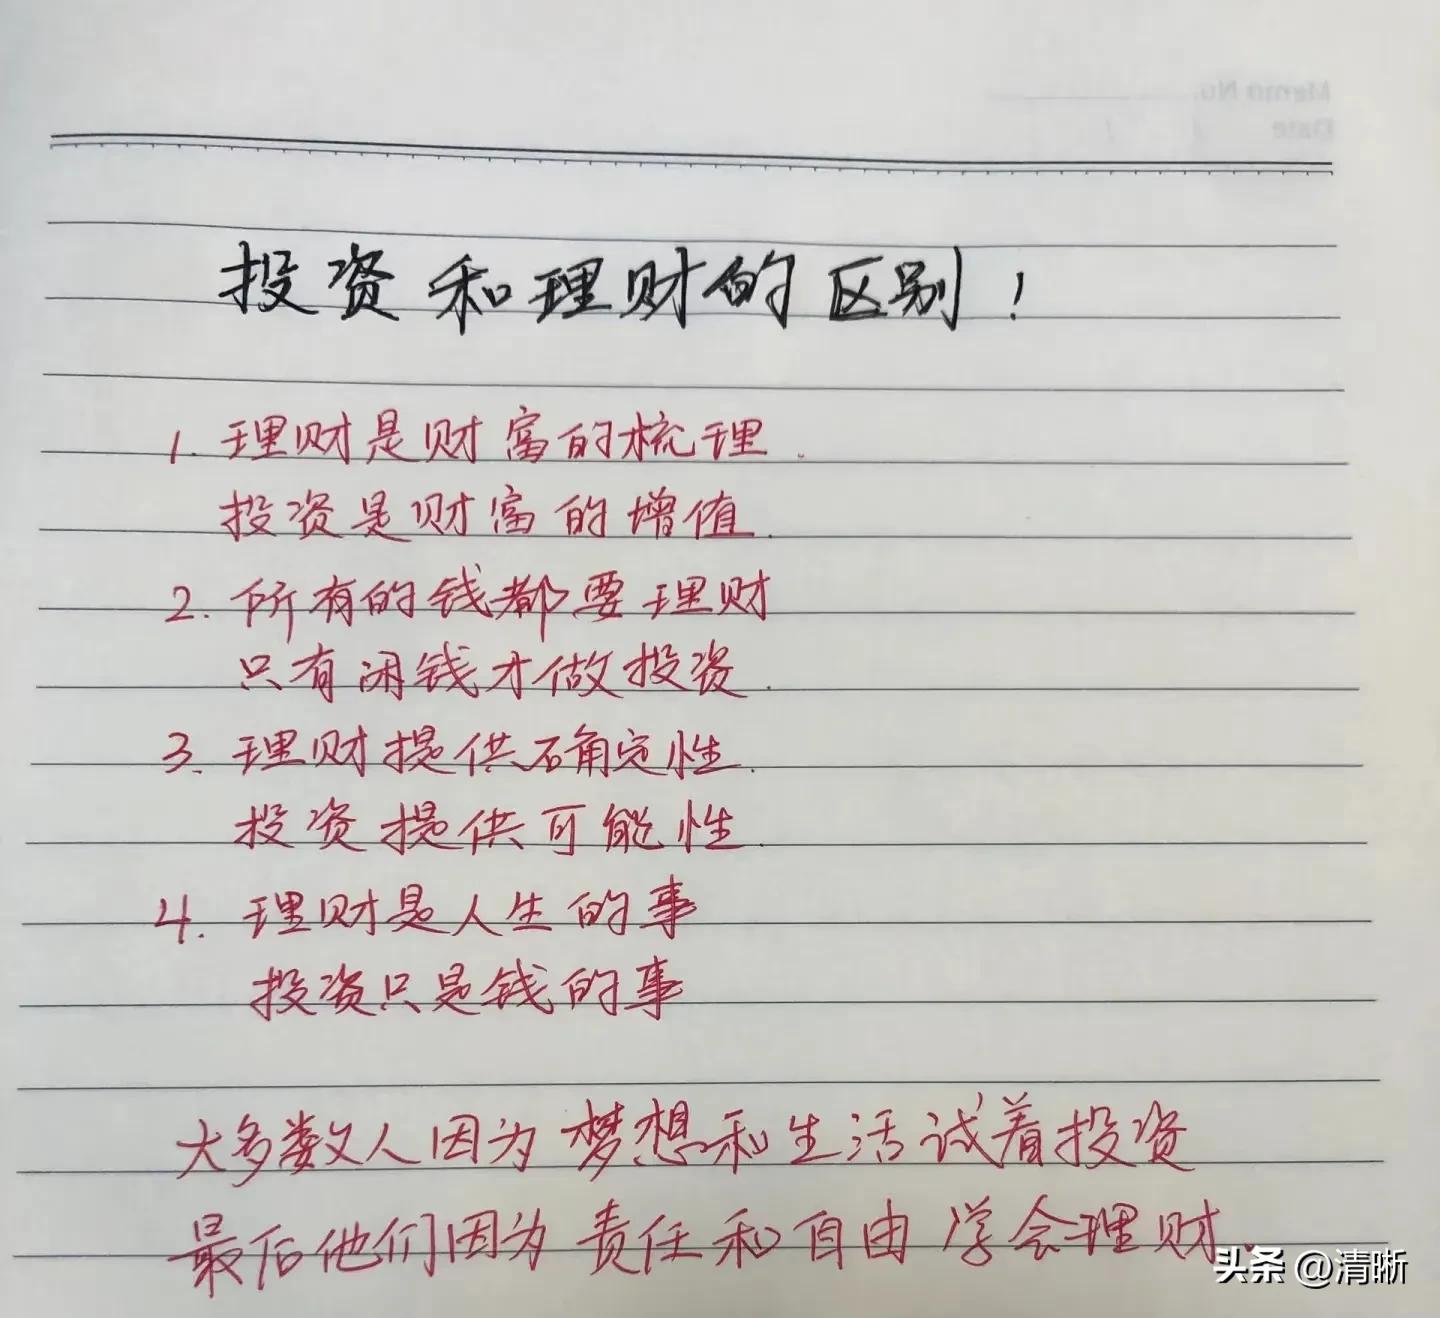 Memo No.
Date / /
投资和理财的区别！
1. 理财是财富的梳理.
投资是财富的增值.
2. 所有的钱都要理财
只有闲钱才做投资.
3. 理财提供确定性.
投资提供可能性.
4. 理财是人生的事
投资只是钱的事
大多数人因为梦想和生活试着投资
最后他们因为责任和自由学会理财.
头条 @清晰